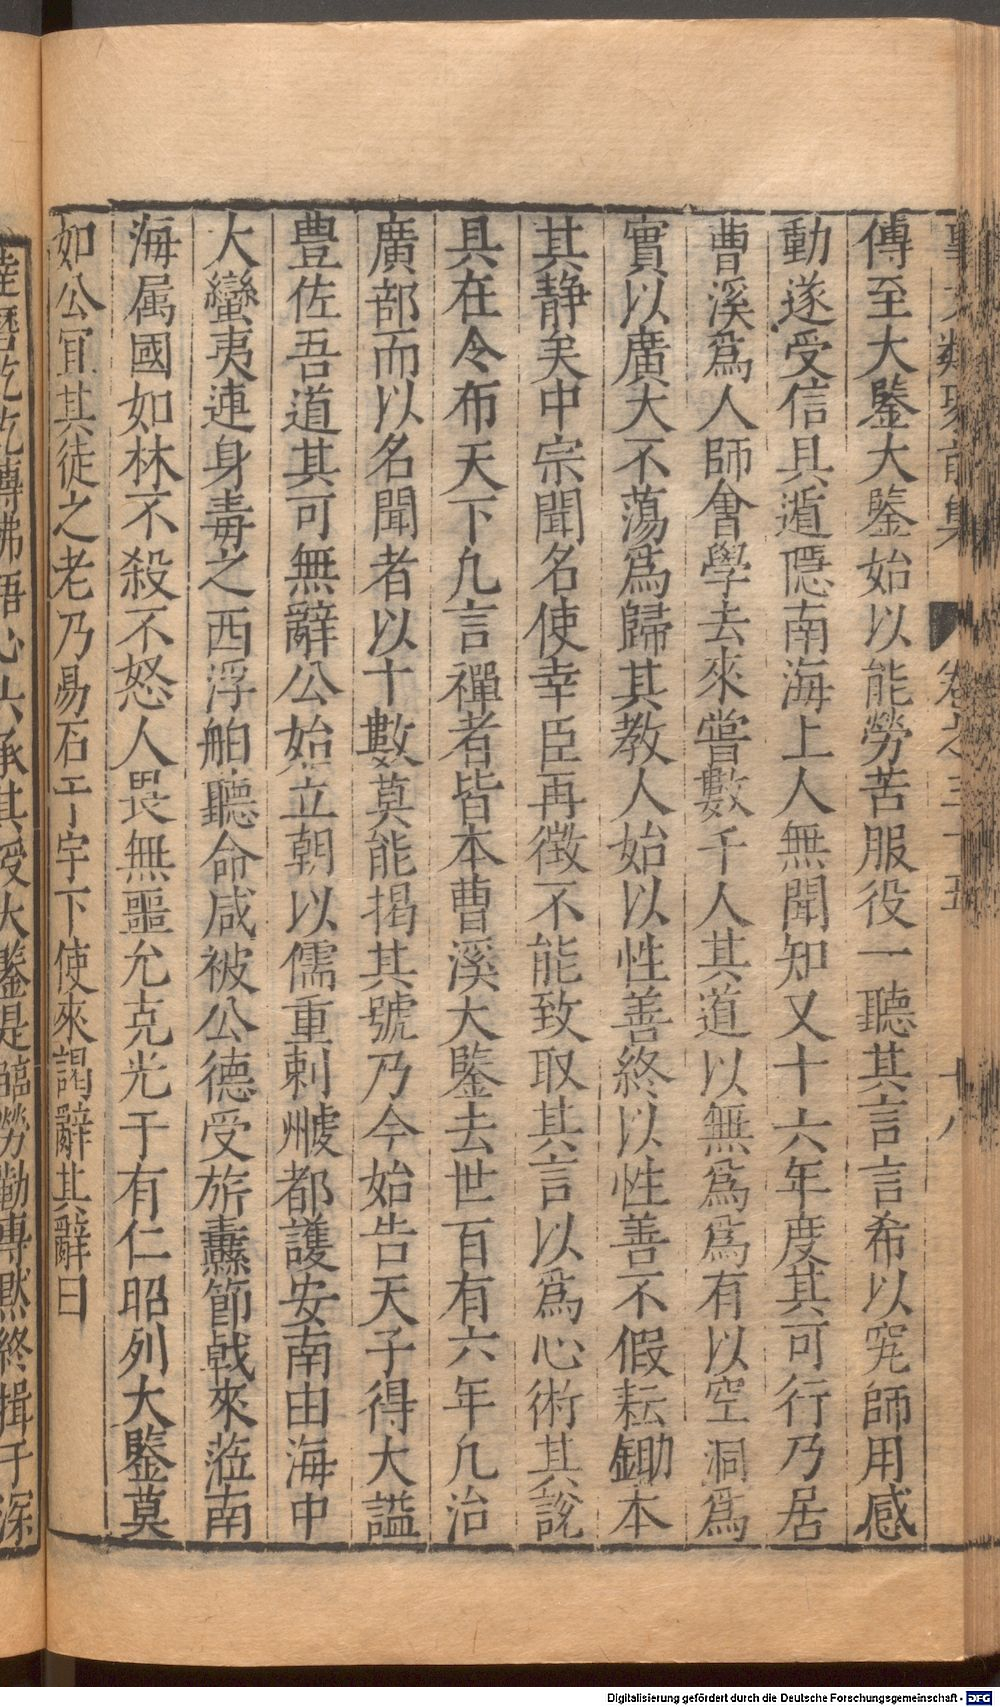 事文類聚前集 卷之三十五 十八
傅至大鑒大鑒始以能勞苦服役一聽其言言希以究師用感
動遂受信具遁隱南海上人無聞知又十六年度其可行乃居
曹溪爲人師會學去來嘗數千人其道以無爲爲有以空洞爲
實以廣大不蕩爲歸其教人始以性善終以性善不假耘鋤本
其静矣中宗聞名使幸臣再徵不能致取其言以爲心術其說
具在今布天下凡言禪者皆本曹溪大鑒去世百有六年凡治
廣部而以名聞者以十數莫能揭其號乃今始告天子得大謚
豊佐吾道其可無辭公始立朝以儒重刺䖍州都護安南由海中
大蠻夷連身毒之西浮舶聽命咸被公德受旂纛節戟來蒞南
海属國如林不殺不怒人畏無噩允克光于有仁昭列大鑒莫
如公宜其徒之老乃易石于宇下使來謁辭其辭曰
達磨乾乾傳佛語心六承其授大鑒是臨勞勤專黙終揖于深
Digitalisierung gefördert durch die Deutsche Forschungsgemeinschaft - DFG